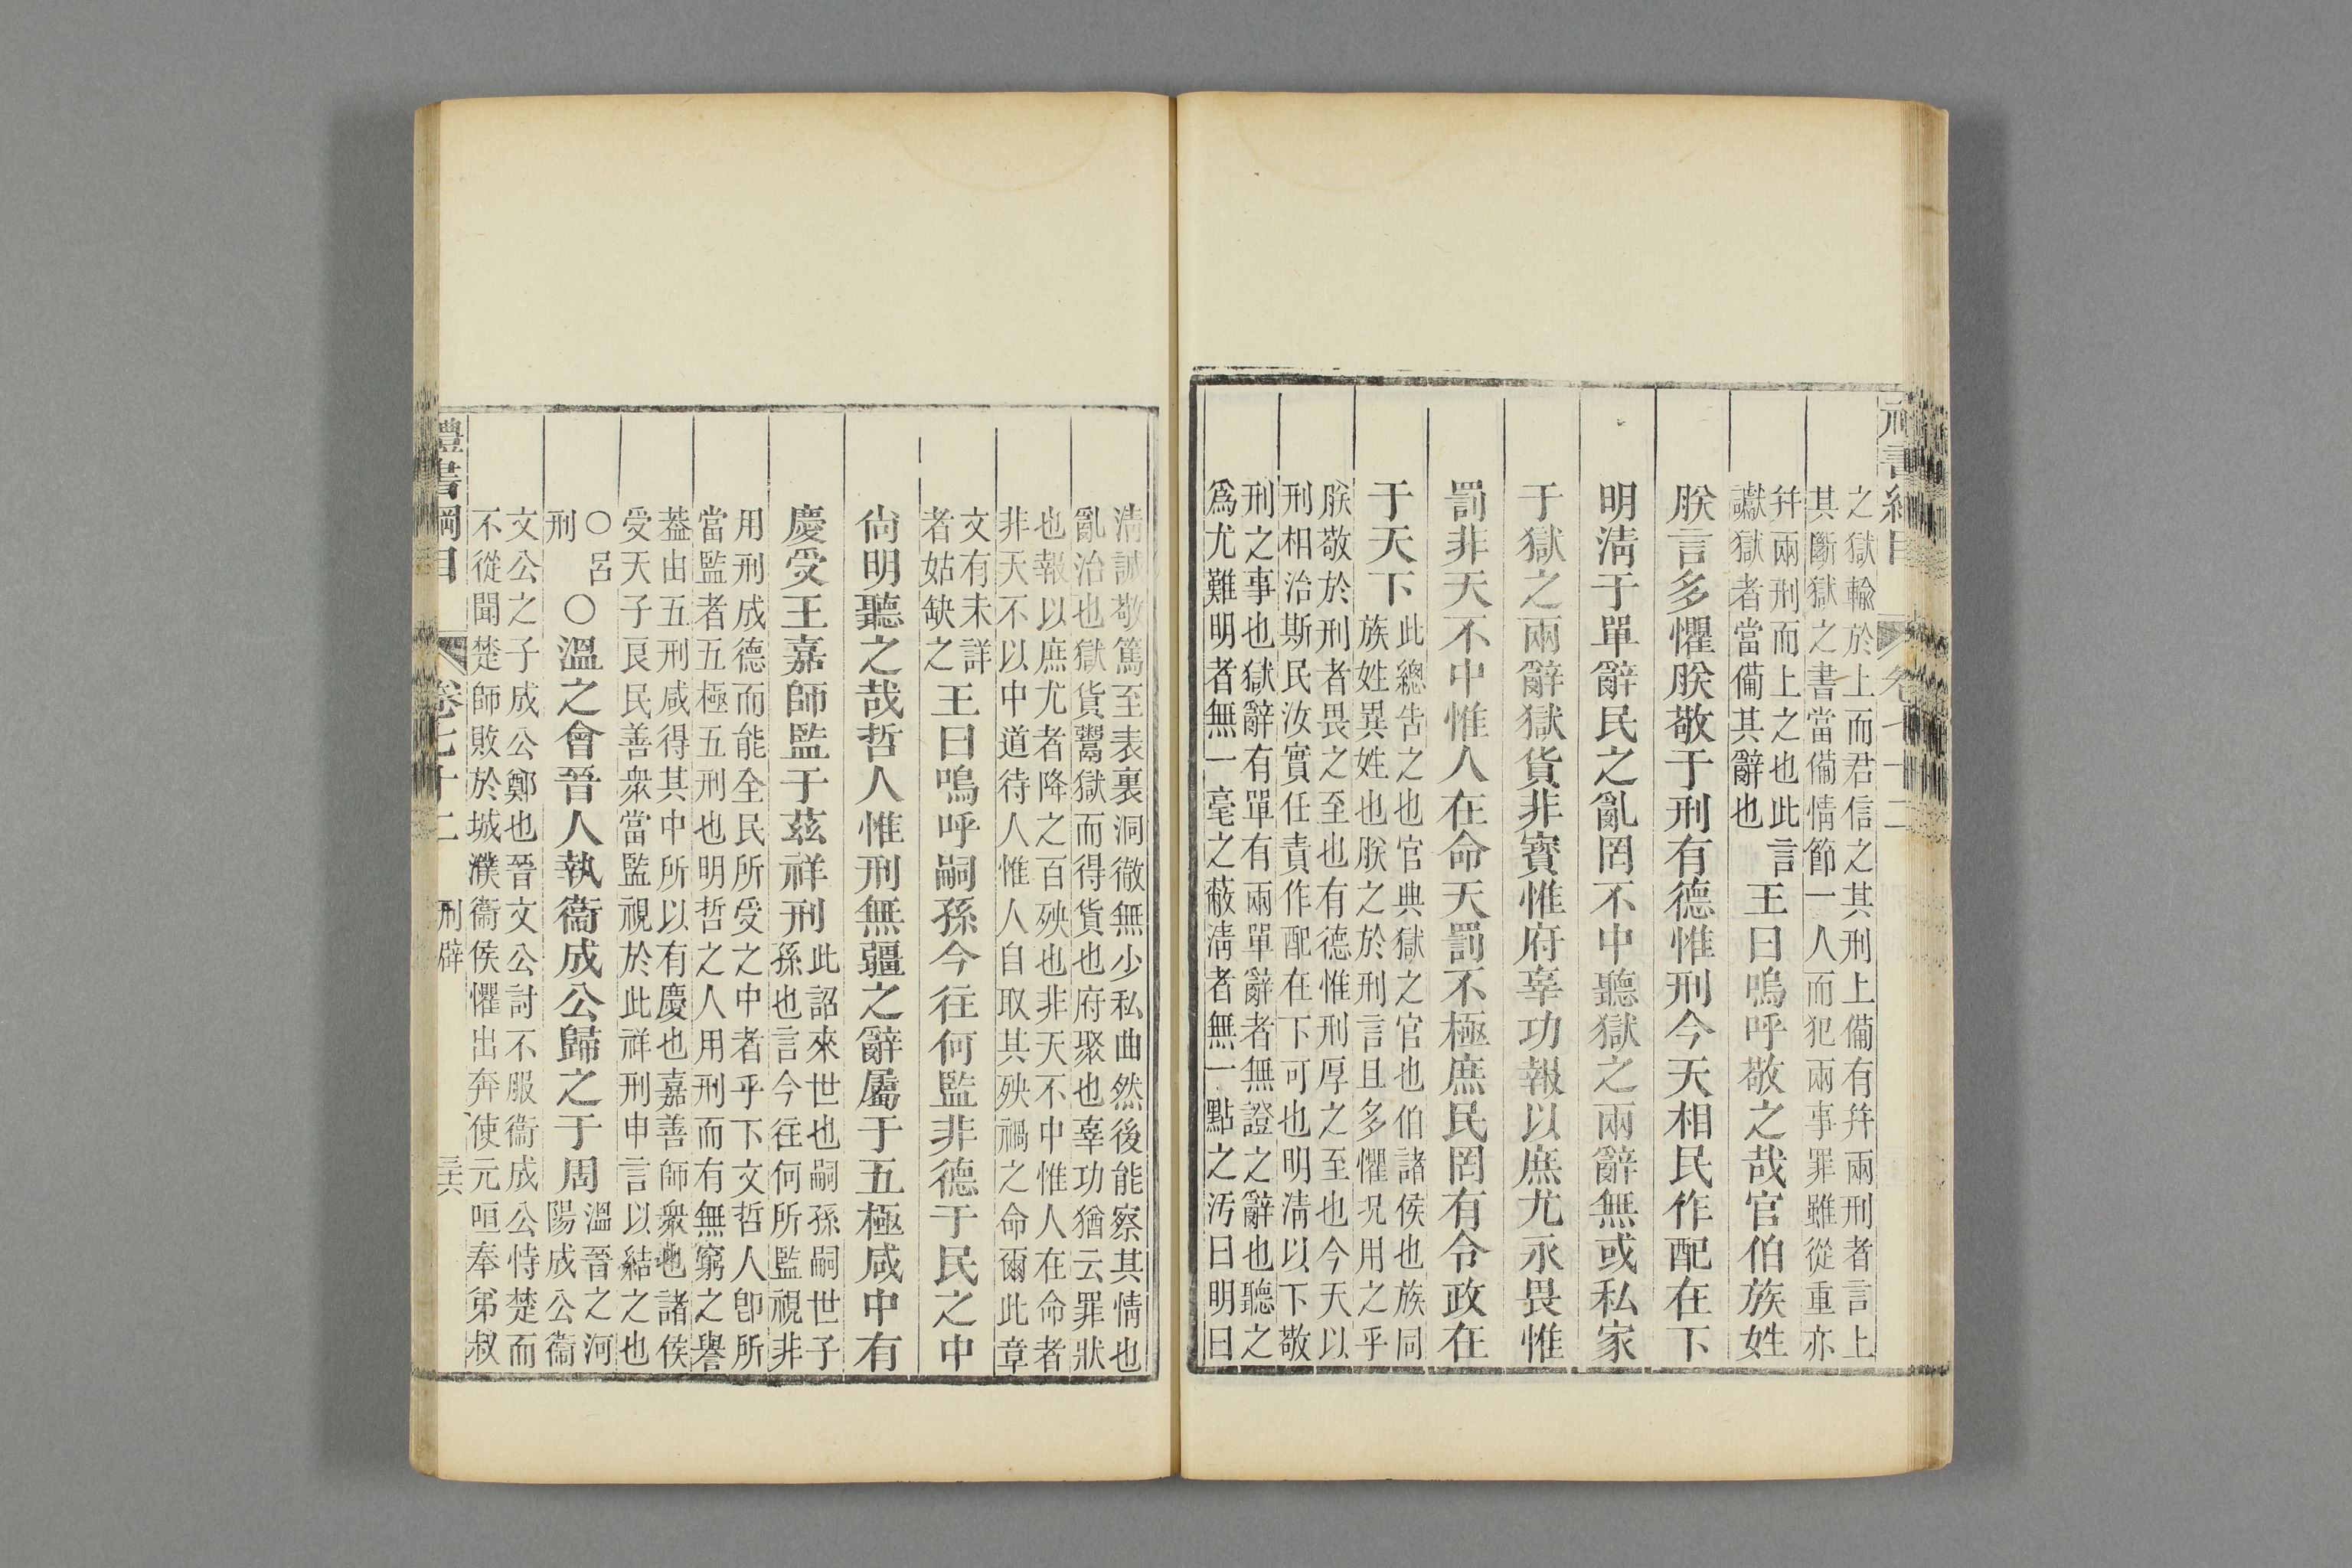 之獄輸於上而君信之其刑上備有幷兩刑者言上
其斷獄之書當備情節一人而犯兩事罪雖從重亦
幷兩刑而上之也此言
讞獄者當備其辭也
王曰嗚呼敬之哉官伯族姓
朕言多懼朕敬于刑有德惟刑今天相民作配在下
明淸于單辭民之亂罔不中聽獄之兩辭無或私家
于獄之兩辭獄貨非寶惟府辜功報以庶尤永畏惟
罰非天不中惟人在命天罰不極庶民罔有令政在
于天下
此總告之也官典獄之官也伯諸侯也族同
族姓異姓也朕之於刑言且多懼況用之乎
朕敬於刑者畏之至也有德惟刑厚之至也今天以
刑相治斯民汝實任責作配在下可也明淸以下敬
刑之事也獄辭有單有兩單辭者無證之辭也聽之
爲尤難明者無一毫之蔽淸者無一點之汚曰明曰
淸誠敬篤至表裏洞徹無少私曲然後能察其情也
亂治也獄貨鬻獄而得貨也府聚也辜功猶云罪狀
也報以庶尤者降之百殃也非天不中惟人在命者
非天不以中道待人惟人自取其殃禍之命爾此章
文有未詳
者姑缺之
王曰嗚呼嗣孫今往何監非德于民之中
尙明聽之哉哲人惟刑無疆之辭屬于五極咸中有
慶受王嘉師監于茲祥刑
此詔來世也嗣孫嗣世子
孫也言今往何所監視非
用刑成德而能全民所受之中者乎下文哲人卽所
當監者五極五刑也明哲之人用刑而有無窮之譽
葢由五刑咸得其中所以有慶也嘉善師衆也諸侯
受天子良民善衆當監視於此祥刑申言以結之也
○呂
刑
○溫之會晉人執衞成公歸之于周
溫晉之河
陽成公衞
文公之子成公鄭也晉文公討不服衞成公恃楚而
不從聞楚師敗於城濮衞侯懼出奔使元咺奉弟叔
禮書綱目
卷七十二
刑辟